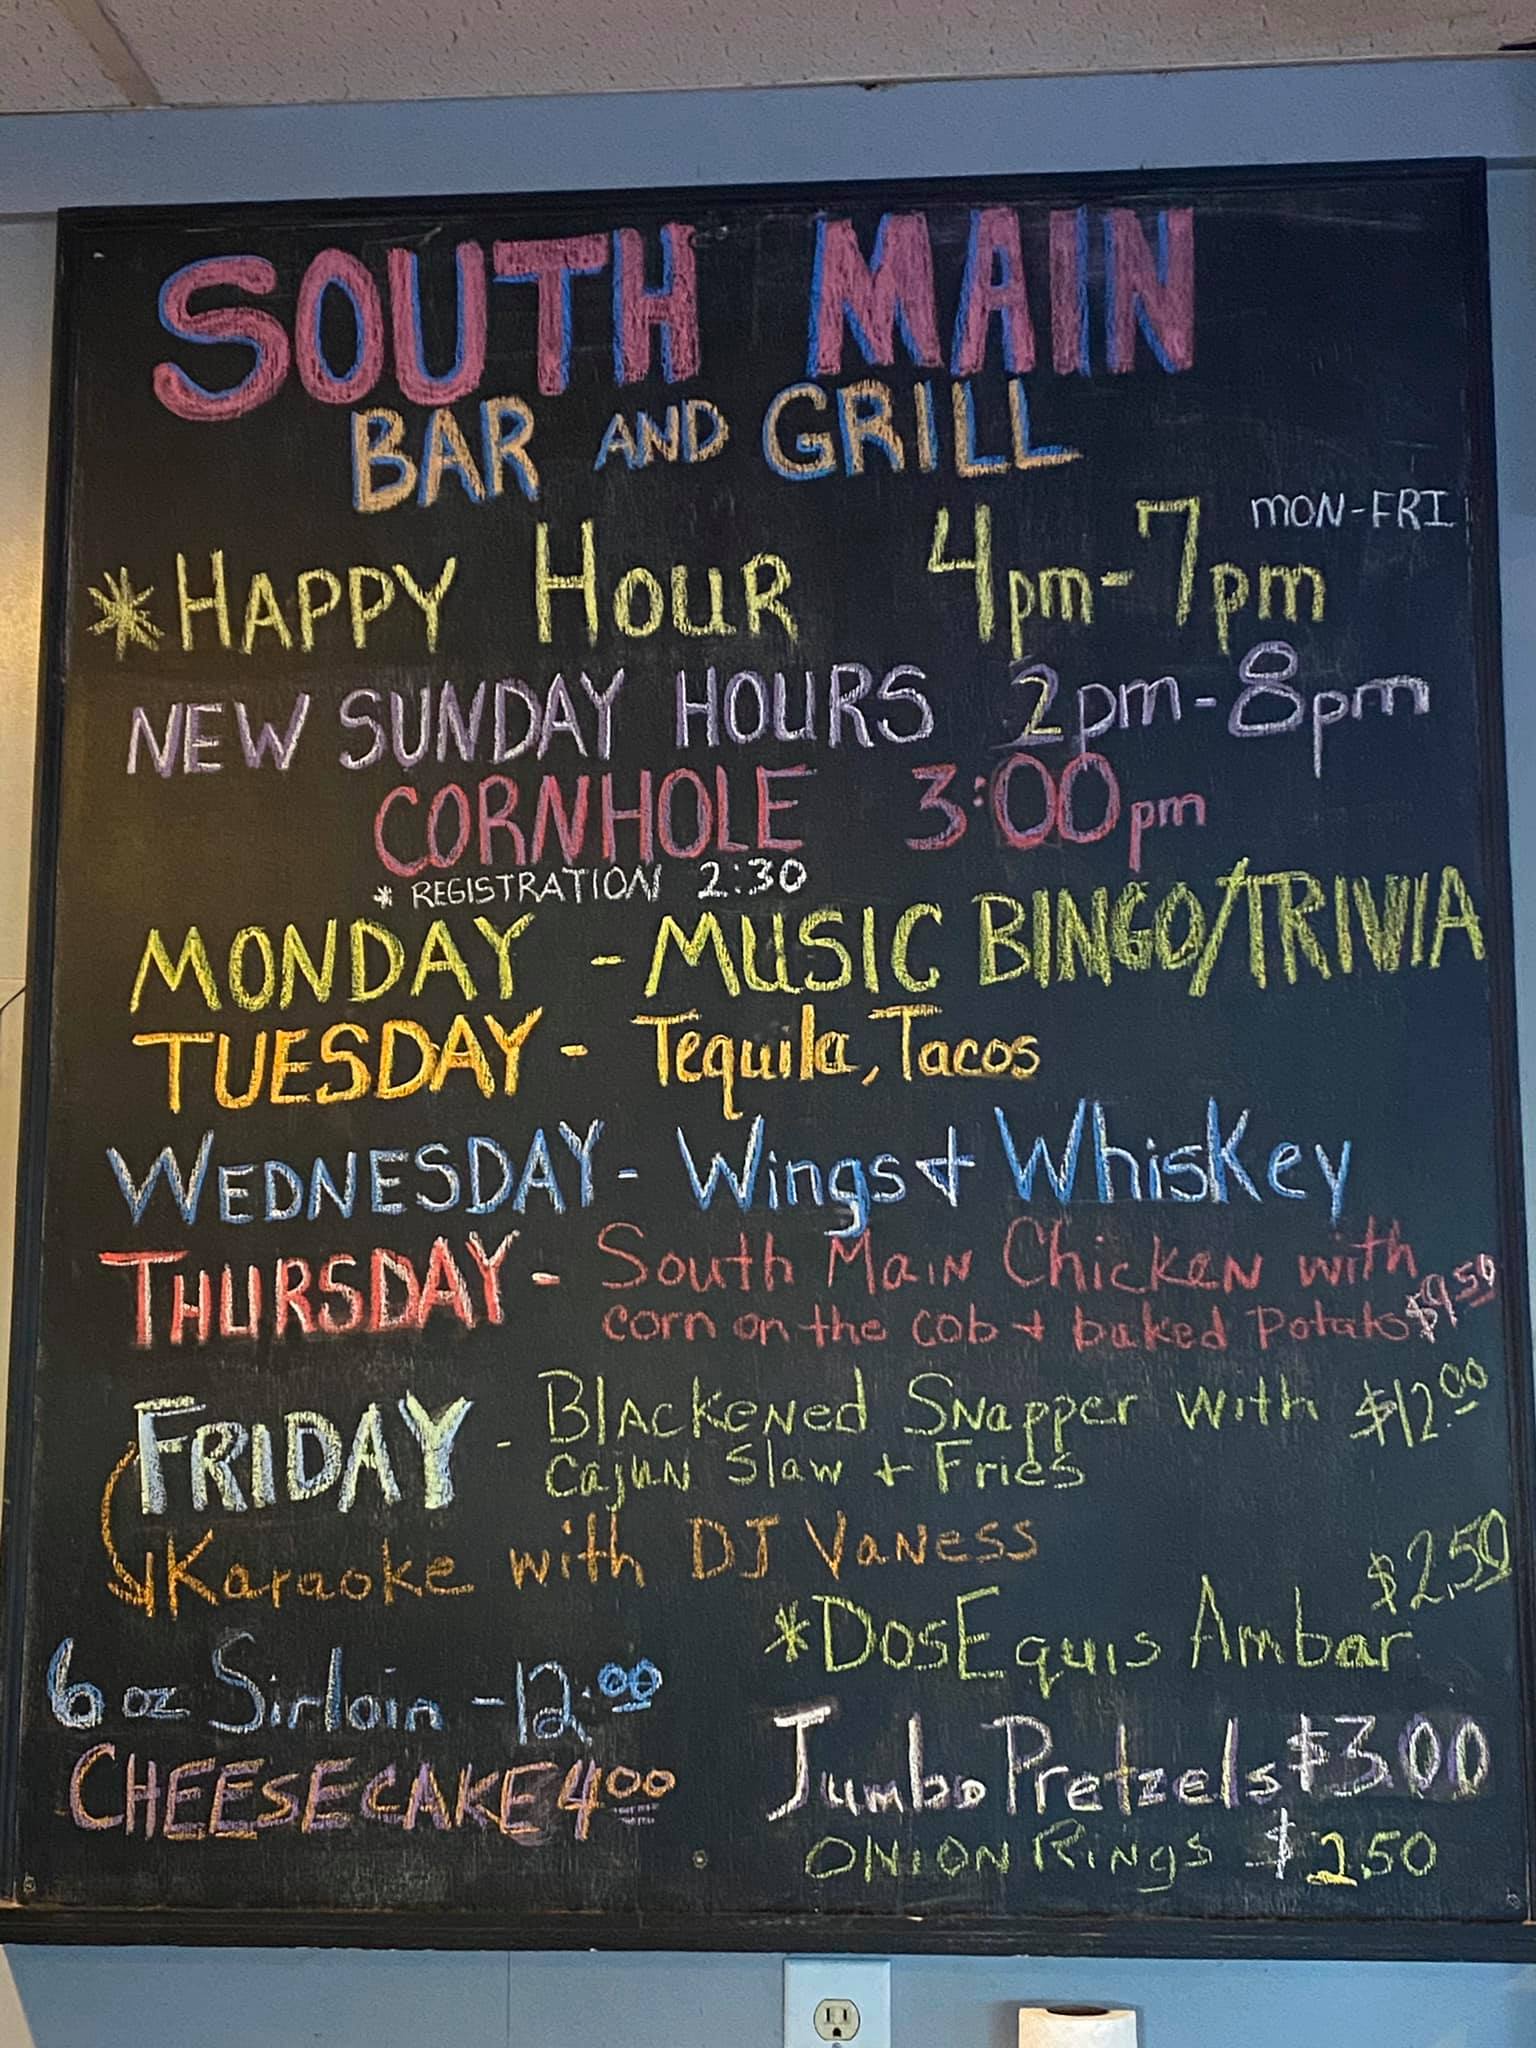 SOUTH MAIN
BAR AND GRILL
MON-FRI
*HAPPY HOUR 4pm-7pm
NEW SUNDAY HOURS 2pm-8pm
CORNHOLE 3:00pm
* REGISTRATION 2:30
MONDAY - MUSIC BINGO/TRIVIA
TUESDAY - Tequila, Tacos
WEDNESDAY - Wings & Whiskey
THURSDAY - South Main Chicken with
corn on the cob & baked Potato $9.50
FRIDAY - Blackened Snapper with $12.00
Cajun Slaw & Fries
Karaoke with DJ Vaness
$2.50
*DosEquis Ambar
6 oz Sirloin - 12.00
CHEESECAKE 4.00
Jumbo Pretzels $3.00
ONION Rings $2.50